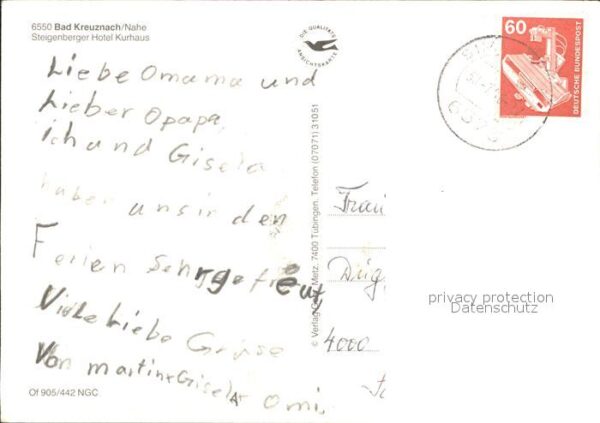 6550 Bad Kreuznach/Nahe
Steigenberger Hotel Kurhaus
DIE QUALITÄTS
ANSICHTSKARTE
60
DEUTSCHE BUNDESPOST
Liebe Omama und
Lieber Opapa,
ich und Gisela
haben uns in den
Ferien sehr gefreut,
Viele Liebe Grüse
Von martin Gisela Omi
© Verlag Metz, 7400 Tübingen, Telefon (07071) 31051
4000
privacy protection
Datenschutz
Of 905/442 NGC